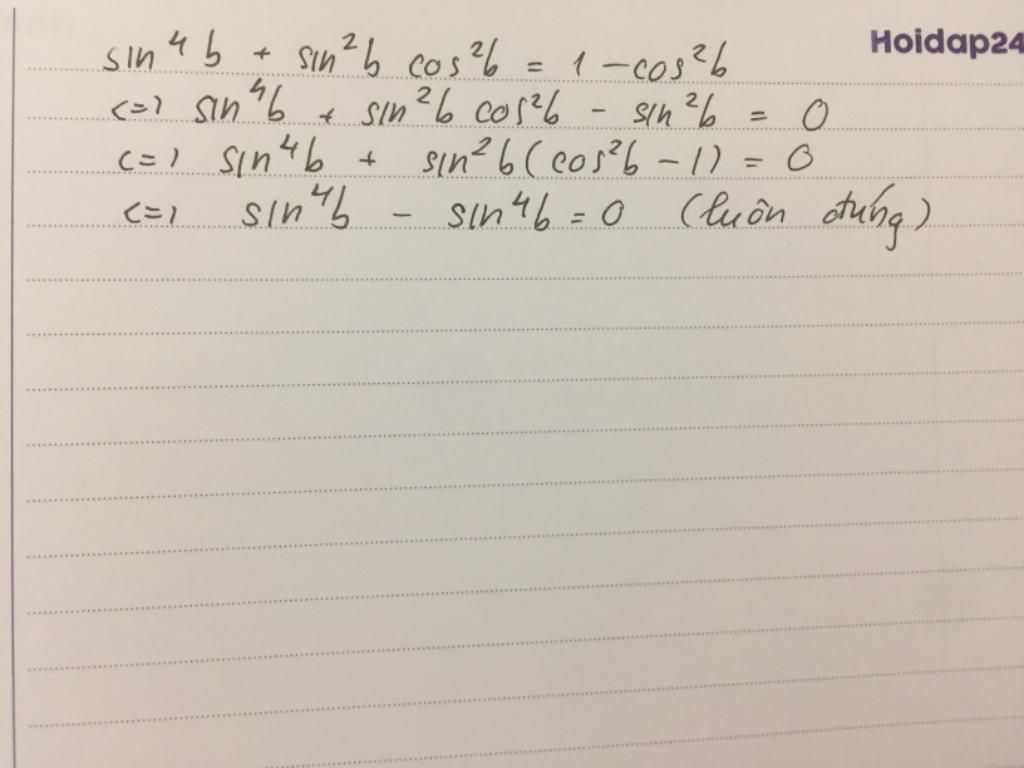 Hoidap24
sin⁴b + sin²b cos²b = 1 - cos²b
<=> sin⁴b + sin²b cos²b - sin²b = 0
<=> sin⁴b + sin²b(cos²b - 1) = 0
<=> sin⁴b - sin⁴b = 0 (luôn đúng)